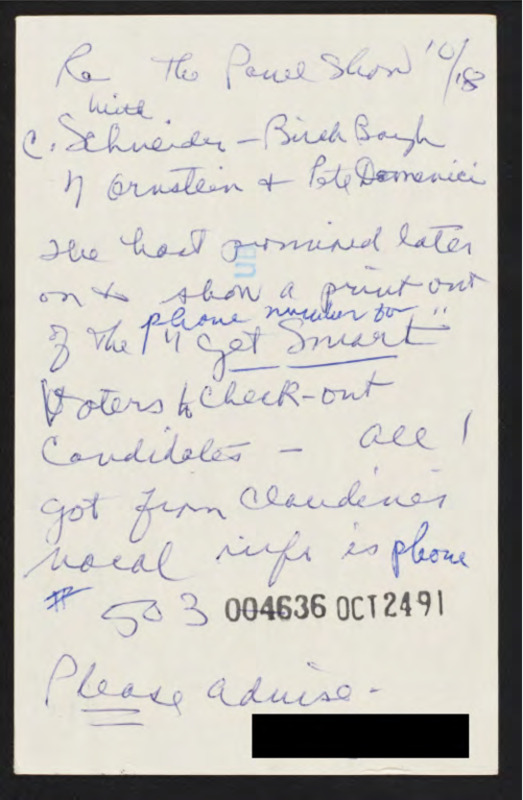 Re The Panel Show 10/18
with
C. Schneider - Birch Bayh
N Ornstein & Pete Domenici
The host promised later
on to show a print out
of the phone number for
"Get Smart"
Voters to Check-out
Candidates - all I
got from Claudine's
vocal info is phone
# 503
004636 OCT 24 91
Please advise -